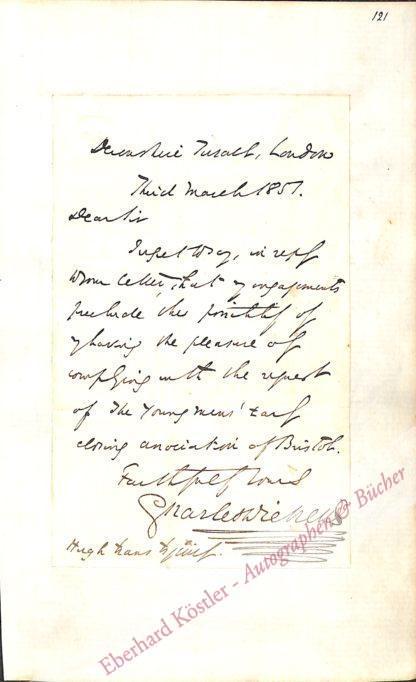 121
Devonshire Terrace, London
Third March 1851.
Dear Sir
I regret to say, in reply
to your letter, that my engagements
preclude the possibility of
my having the pleasure of
complying with the request
of The Young Mens' Early
closing association of Bristol.
Faithfully Yours
Charles Dickens
Hugh Evans
Eberhard Köstler - Autographen & Bücher